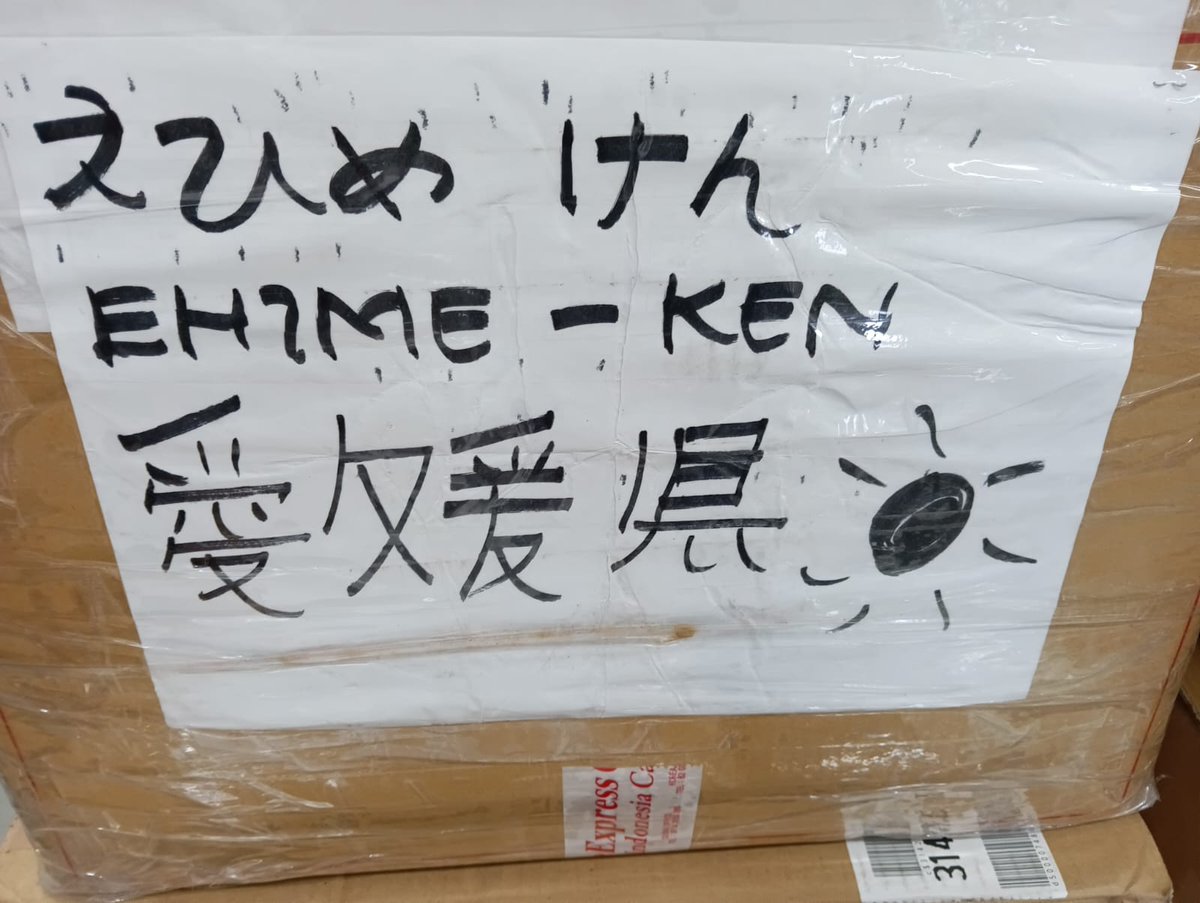 えひめ けん
EHIME - KEN
愛媛県
Express
Indonesia Ca
314